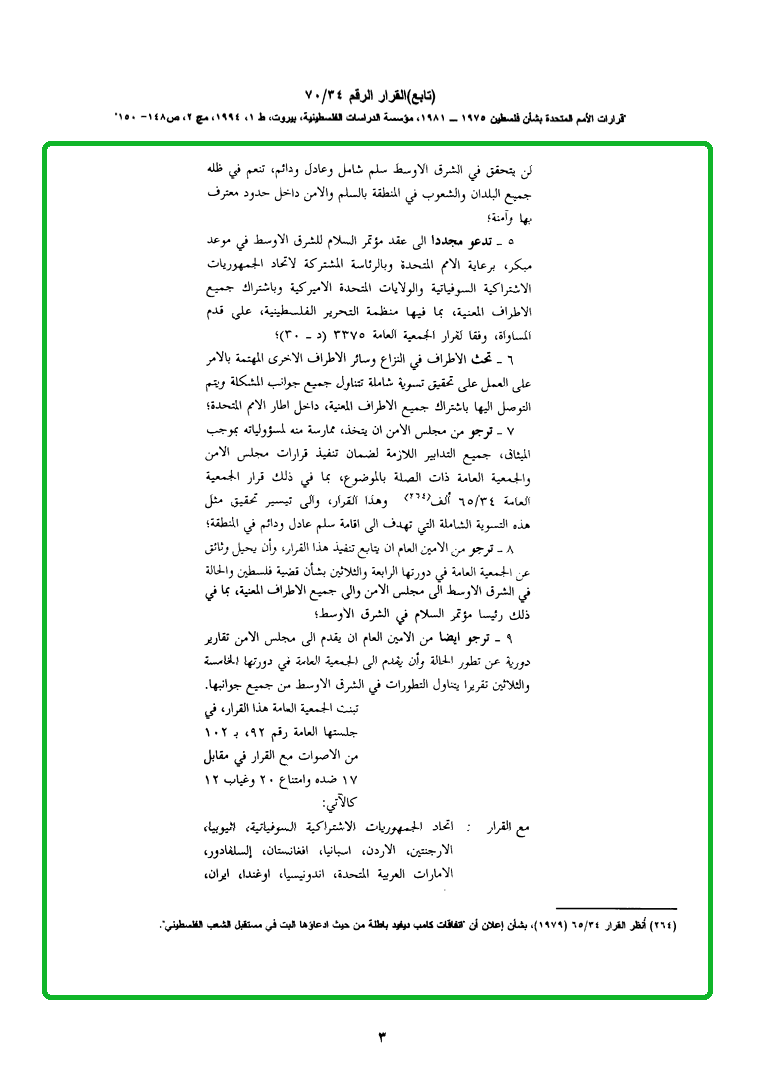 (تابع)القرار الرقم ٧٠/٣٤
"قرارات الأمم المتحدة بشأن فلسطين ١٩٧٥ ـــ ١٩٨١، مؤسسة الدراسات الفلسطينية، بيروت، ط ١، ١٩٩٤، مج ٢، ص١٤٨- ١٥٠"
لن يتحقق في الشرق الاوسط سلم شامل وعادل ودائم، تنعم في ظله
جميع البلدان والشعوب في المنطقة بالسلم والامن داخل حدود معترف
بها وآمنة؛
٥ ـ تدعو مجددا الى عقد مؤتمر السلام للشرق الاوسط في موعد
مبكر، برعاية الامم المتحدة وبالرئاسة المشتركة لاتحاد الجمهوريات
الاشتراكية السوفياتية والولايات المتحدة الاميركية وباشتراك جميع
الاطراف المعنية، بما فيها منظمة التحرير الفلسطينية، على قدم
المساواة، وفقا لقرار الجمعية العامة ٣٣٧٥ (د ـ ٣٠)؛
٦ ـ تحث الاطراف في النزاع وسائر الاطراف الاخرى المهتمة بالامر
على العمل على تحقيق تسوية شاملة تتناول جميع جوانب المشكلة ويتم
التوصل اليها باشتراك جميع الاطراف المعنية، داخل اطار الامم المتحدة؛
٧ ـ ترجو من مجلس الامن ان يتخذ، ممارسة منه لمسؤولياته بموجب
الميثاق، جميع التدابير اللازمة لضمان تنفيذ قرارات مجلس الامن
والجمعية العامة ذات الصلة بالموضوع، بما في ذلك قرار الجمعية
العامة ٦٥/٣٤ ألف(٢٦٤) وهذا القرار، والى تيسير تحقيق مثل
هذه التسوية الشاملة التي تهدف الى اقامة سلم عادل ودائم في المنطقة؛
٨ ـ ترجو من الامين العام ان يتابع تنفيذ هذا القرار، وأن يحيل وثائق
عن الجمعية العامة في دورتها الرابعة والثلاثين بشأن قضية فلسطين والحالة
في الشرق الاوسط الى مجلس الامن والى جميع الاطراف المعنية، بما في
ذلك رئيسا مؤتمر السلام في الشرق الاوسط؛
٩ ـ ترجو ايضا من الامين العام ان يقدم الى مجلس الامن تقارير
دورية عن تطور الحالة وأن يقدم الى الجمعية العامة في دورتها الخامسة
والثلاثين تقريرا يتناول التطورات في الشرق الاوسط من جميع جوانبها.
تبنت الجمعية العامة هذا القرار، في
جلستها العامة رقم ٩٢، بـ ١٠٢
من الاصوات مع القرار في مقابل
١٧ ضده وامتناع ٢٠ وغياب ١٢
كالآتي:
مع القرار : اتحاد الجمهوريات الاشتراكية السوفياتية، اثيوبيا،
الارجنتين، الاردن، اسبانيا، افغانستان، إلسلفادور،
الامارات العربية المتحدة، اندونيسيا، اوغندا، ايران،
(٢٦٤) أنظر القرار ٦٥/٣٤ (١٩٧٩)، بشأن إعلان أن "اتفاقات كامب ديفيد باطلة من حيث ادعاؤها البت في مستقبل الشعب الفلسطيني".
٣